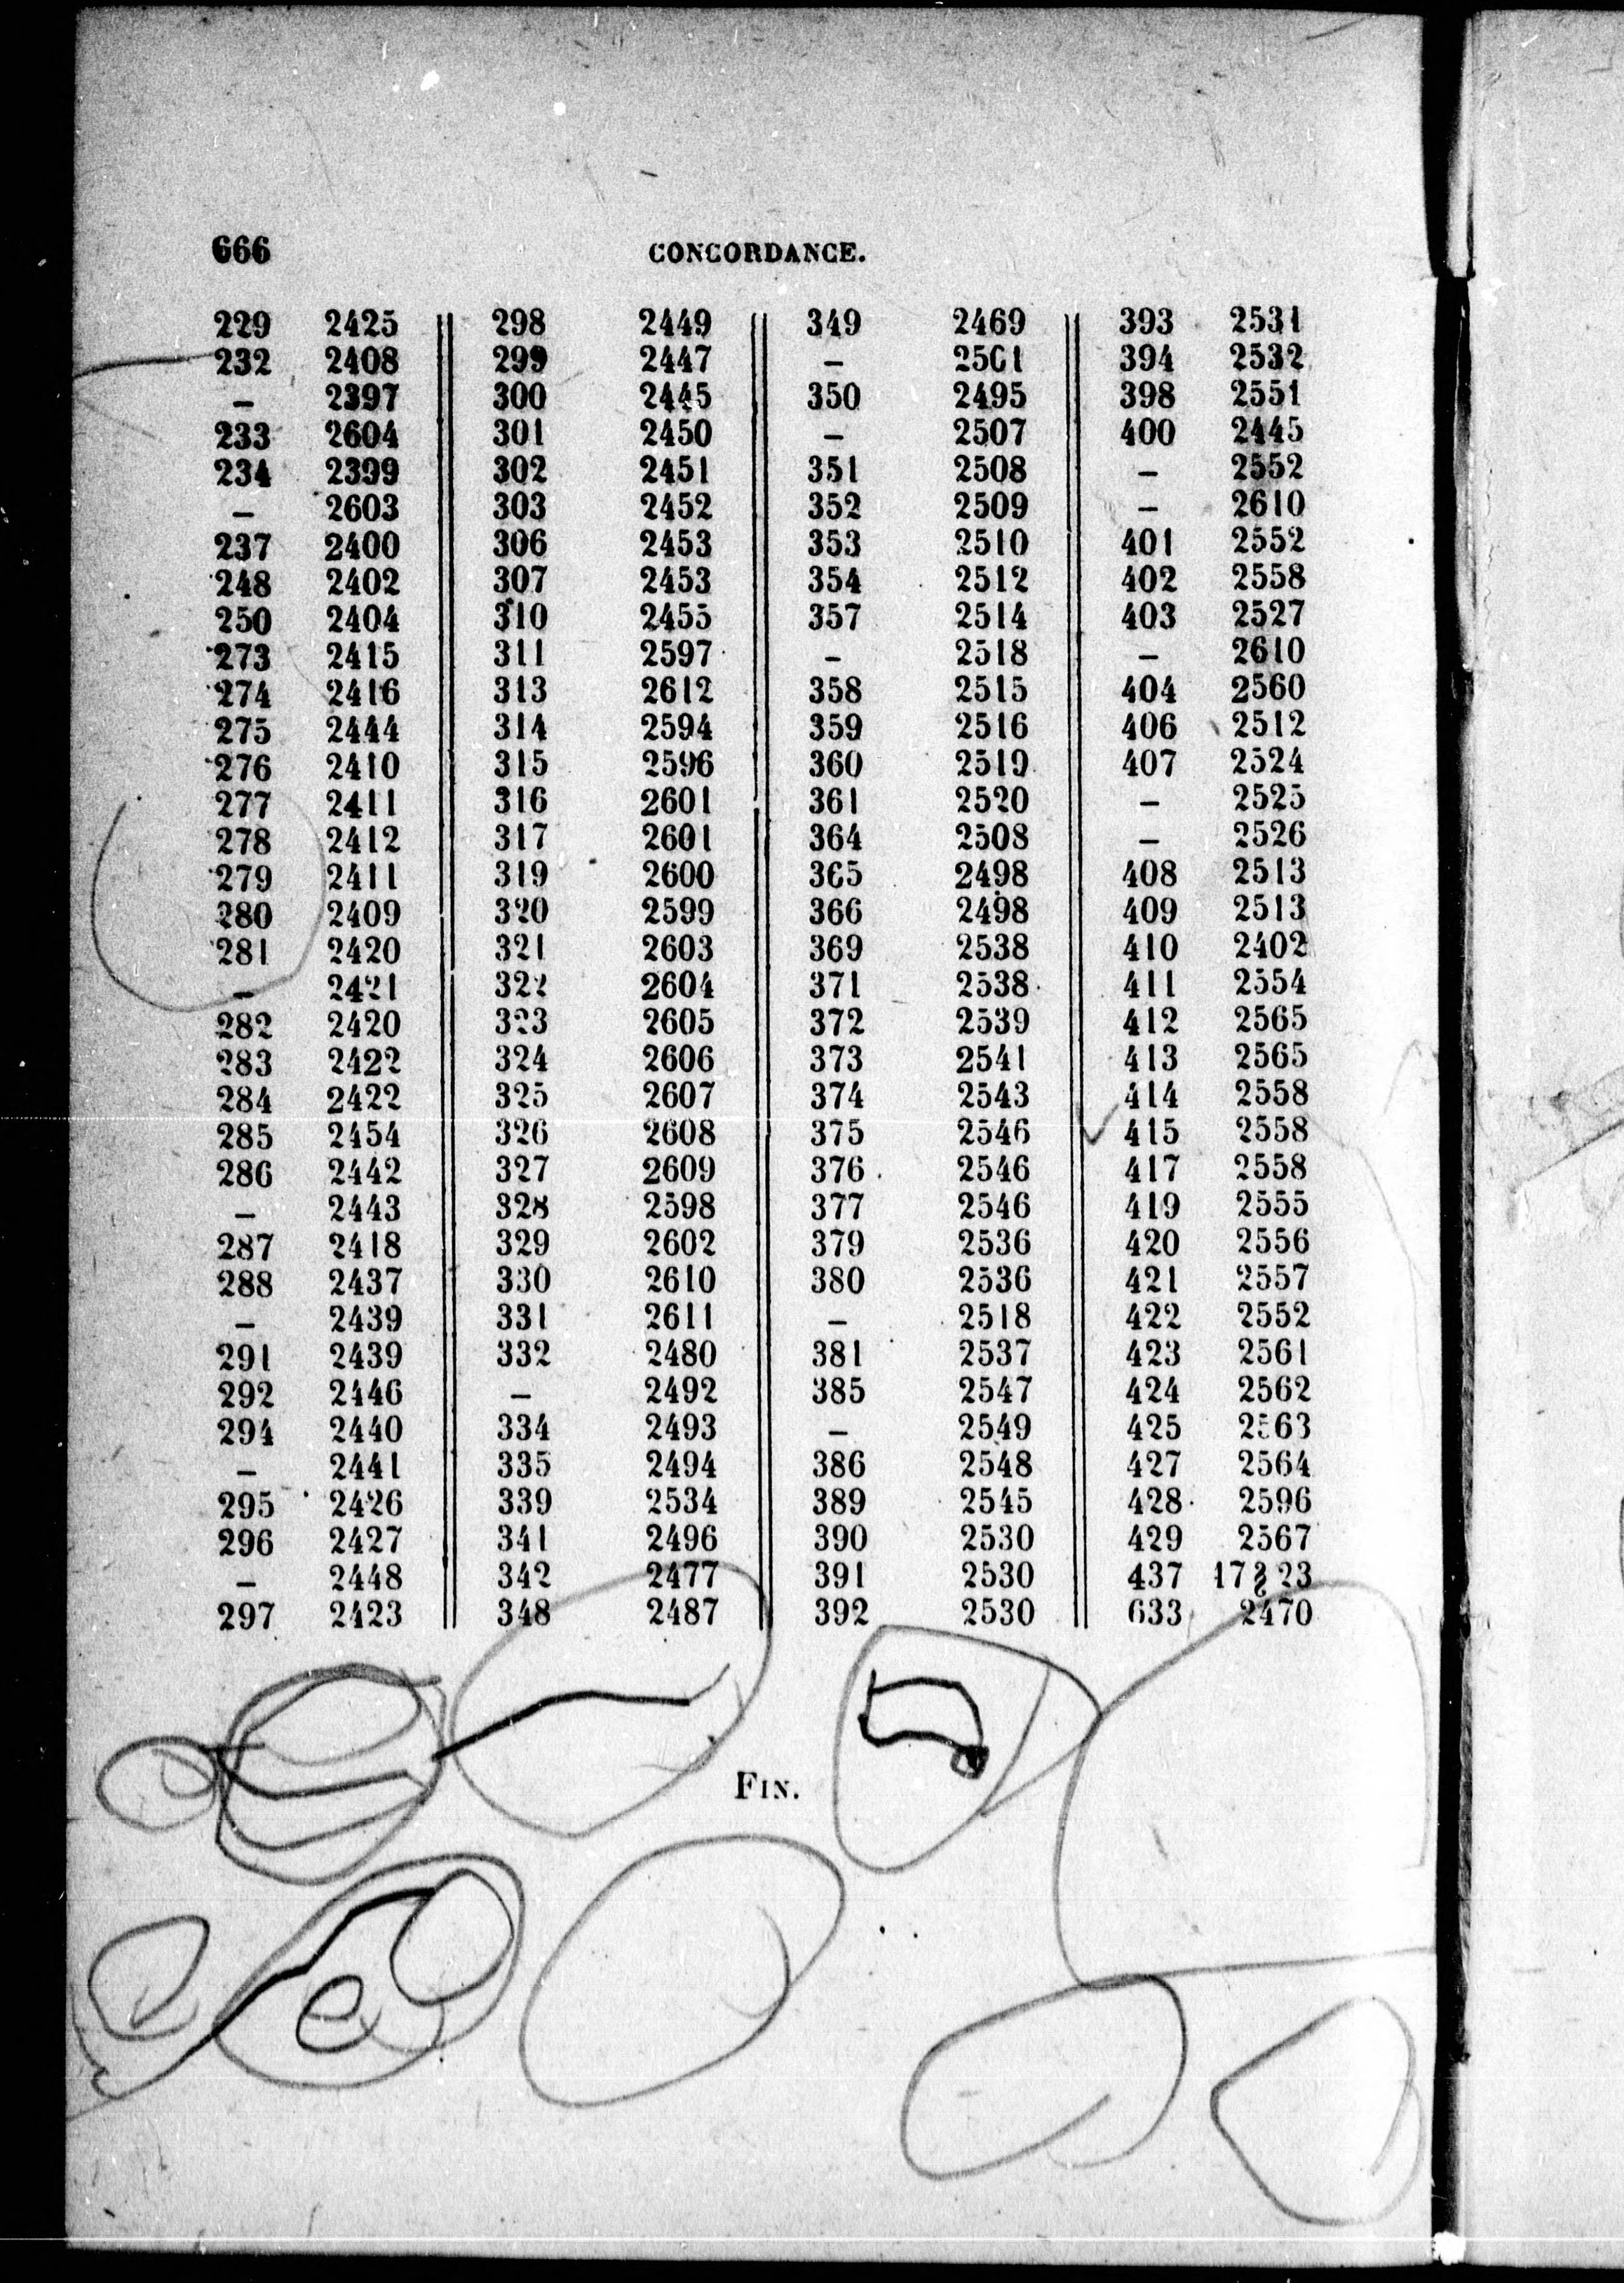 666 CONCORDANCE.
229 2425 298 2449 349 2469 393 2531
232 2408 299 2447 – 2501 394 2532
– 2397 300 2445 350 2495 398 2551
233 2604 301 2450 – 2507 400 2445
234 2399 302 2451 351 2508 – 2552
– 2603 303 2452 352 2509 – 2610
237 2400 306 2453 353 2510 401 2552
248 2402 307 2453 354 2512 402 2558
250 2404 310 2455 357 2514 403 2527
273 2415 311 2597 – 2518 – 2610
274 2416 313 2612 358 2515 404 2560
275 2444 314 2594 359 2516 406 2512
276 2410 315 2596 360 2519 407 2524
277 2411 316 2601 361 2520 – 2525
278 2412 317 2601 364 2508 – 2526
279 2411 319 2600 365 2498 408 2513
280 2409 320 2599 366 2498 409 2513
281 2420 321 2603 369 2538 410 2402
– 2421 322 2604 371 2538 411 2554
282 2420 323 2605 372 2539 412 2565
283 2422 324 2606 373 2541 413 2565
284 2422 325 2607 374 2543 414 2558
285 2454 326 2608 375 2546 415 2558
286 2442 327 2609 376 2546 417 2558
– 2443 328 2598 377 2546 419 2555
287 2418 329 2602 379 2536 420 2556
288 2437 330 2610 380 2536 421 2557
– 2439 331 2611 – 2518 422 2552
291 2439 332 2480 381 2537 423 2561
292 2446 – 2492 385 2547 424 2562
294 2440 334 2493 – 2549 425 2563
– 2441 335 2494 386 2548 427 2564
295 2426 339 2534 389 2545 428 2596
296 2427 341 2496 390 2530 429 2567
– 2448 342 2477 391 2530 437
297 2423 348 2487 392 2530 633 2470
FIN.